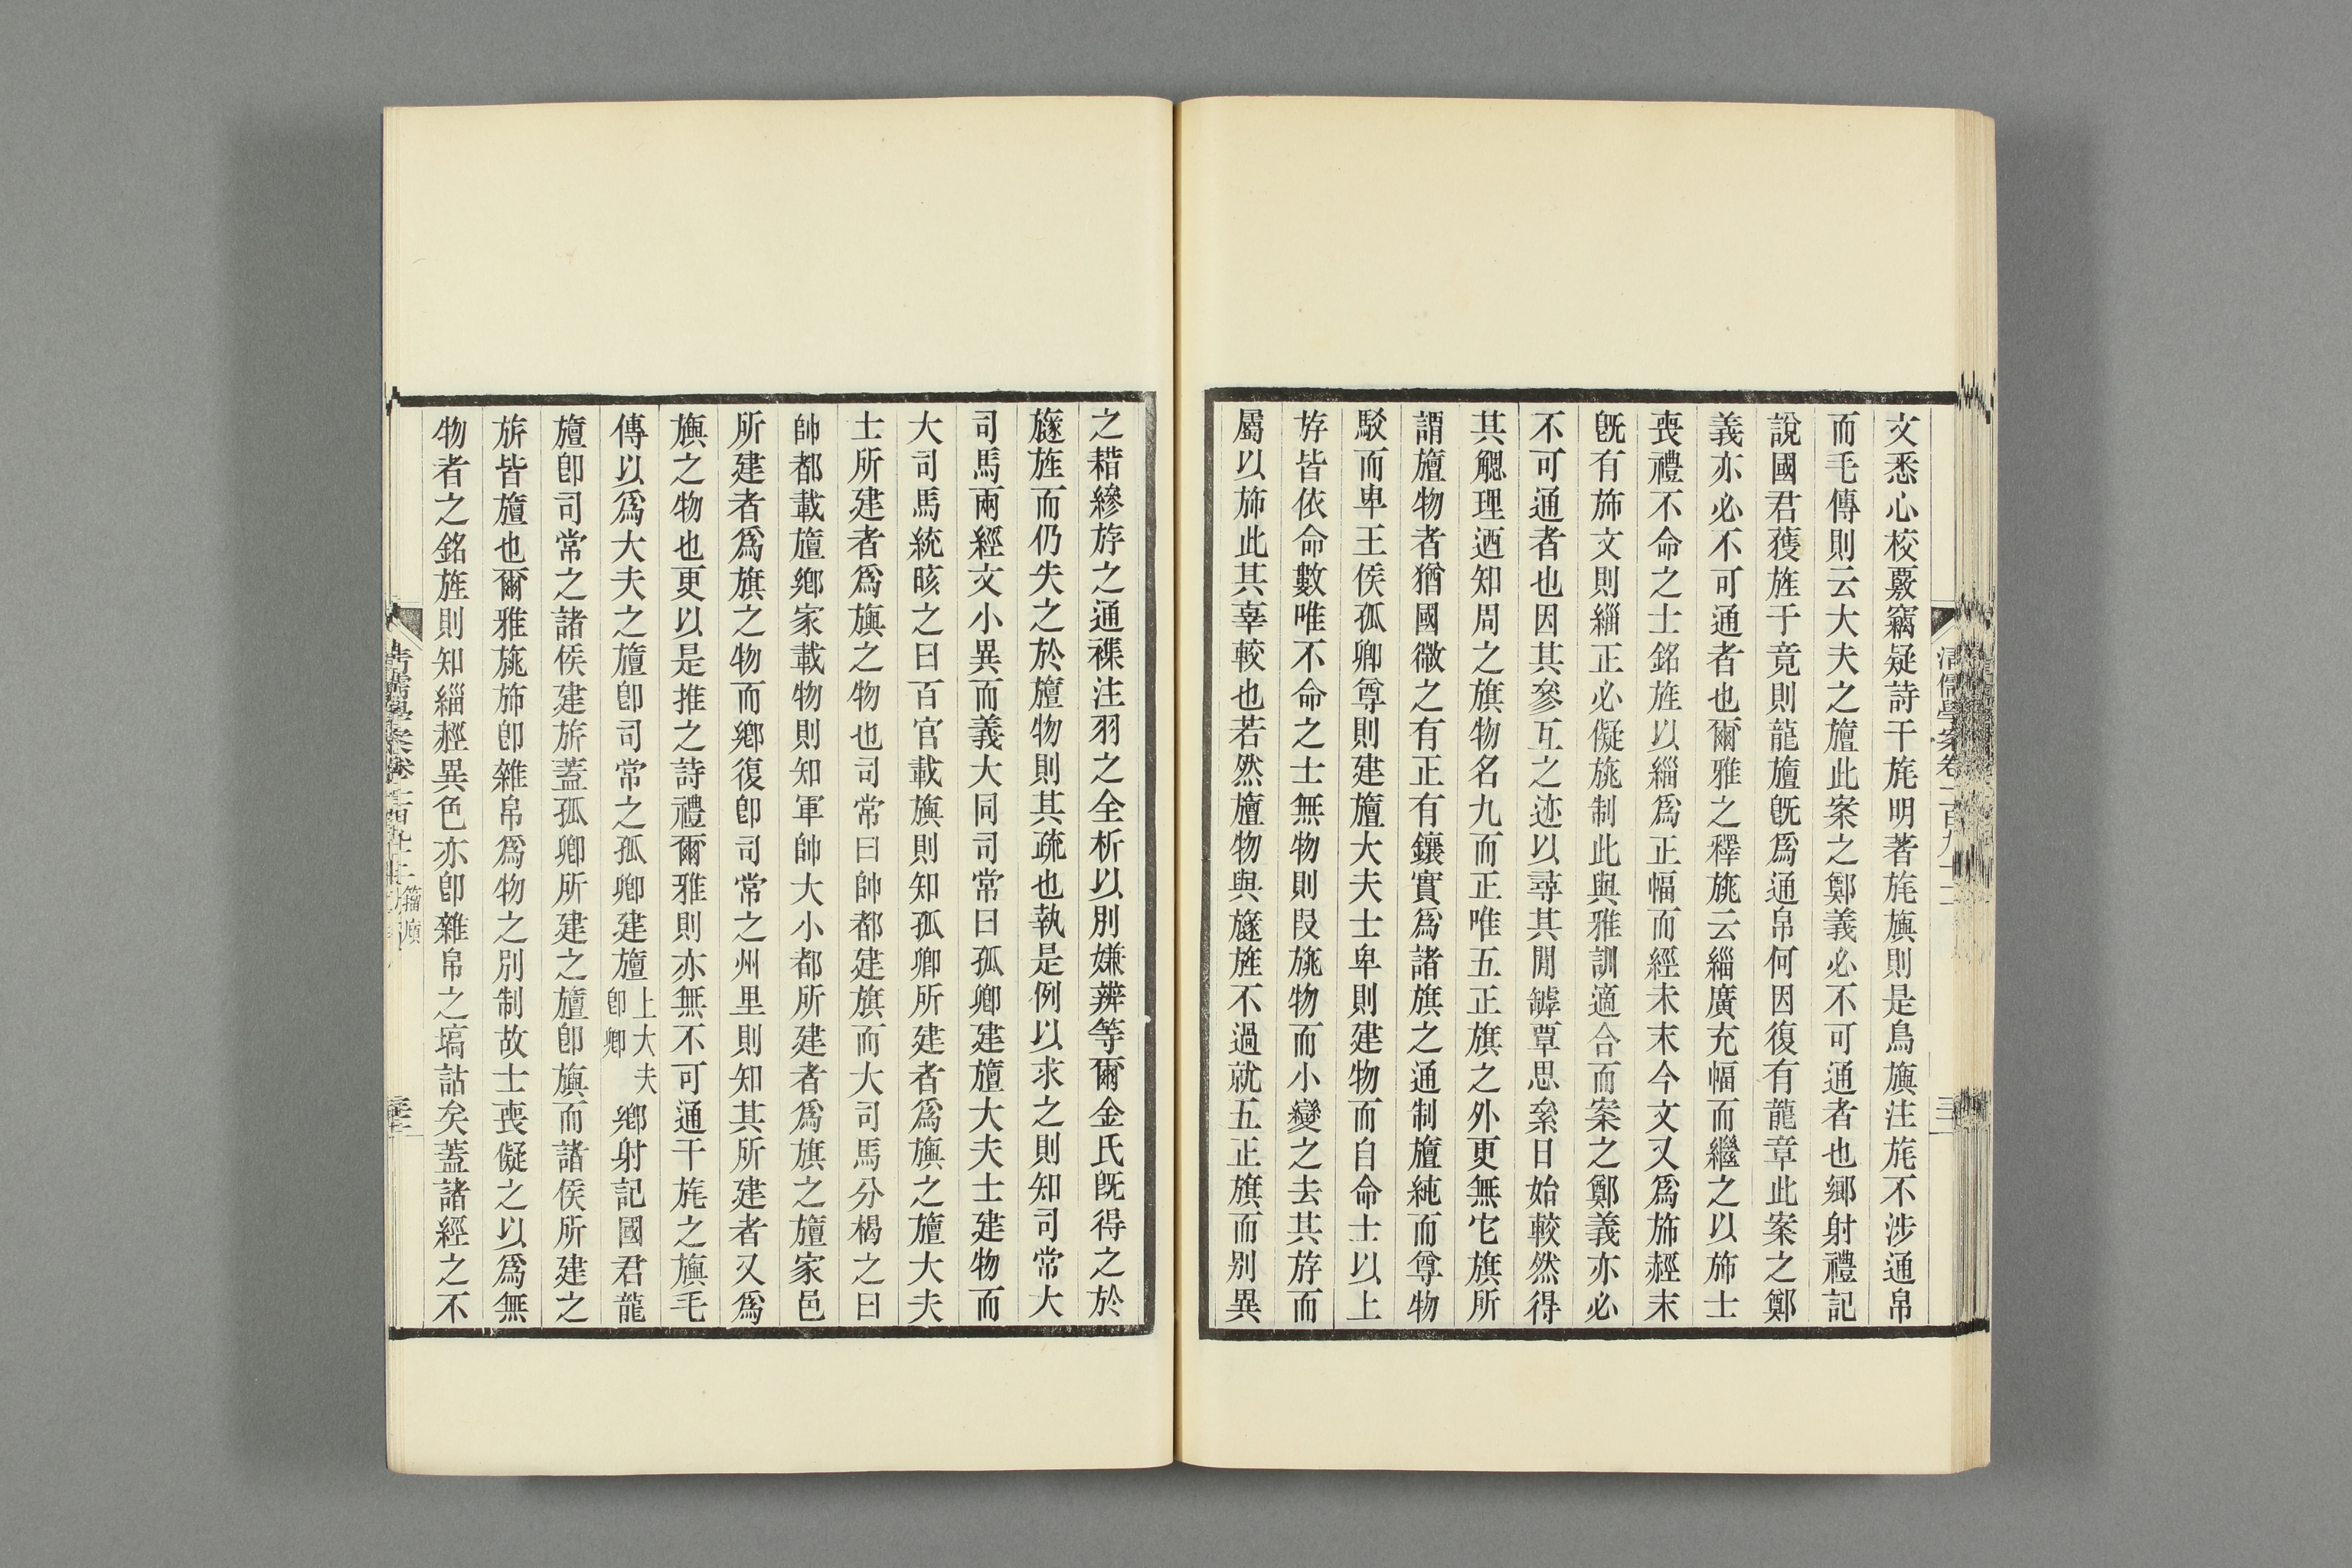 文悉心校覈竊疑詩干旄明著旄旟則是鳥旟注旄不涉通帛
而毛傳則云大夫之旜此案之鄭義必不可通者也鄉射禮記
說國君獲旌于竟則龍旜旣爲通帛何因復有龍章此案之鄭
義亦必不可通者也爾雅之釋旐云緇廣充幅而繼之以斾士
喪禮不命之士銘旌以緇爲正幅而經末末今文又爲斾經末
旣有斾文則緇正必儗旐制此與雅訓適合而案之鄭義亦必
不可通者也因其參互之迹以尋其閒罅覃思絫日始較然得
其䚡理迺知周之旗物名九而正唯五正旗之外更無它旗所
謂旜物者猶國徽之有正有鑲實爲諸旗之通制旜純而尊物
駁而卑王侯孤卿尊則建旜大夫士卑則建物而自命士以上
斿皆依命數唯不命之士無物則叚旐物而小變之去其斿而
屬以斾此其辜較也若然旜物與旞旌不過就五正旗而別異
之耤縿斿之通襍注羽之全析以別嫌辨等爾金氏旣得之於
旞旌而仍失之於旜物則其疏也執是例以求之則知司常大
司馬兩經文小異而義大同司常曰孤卿建旜大夫士建物而
大司馬統晐之曰百官載旟則知孤卿所建者爲旟之旜大夫
士所建者爲旟之物也司常曰帥都建旗而大司馬分楬之曰
帥都載旜鄉家載物則知軍帥大小都所建者爲旗之旜家邑
所建者爲旗之物而鄉復卽司常之州里則知其所建者又爲
旟之物也更以是推之詩禮爾雅則亦無不可通干旄之旟毛
傳以爲大夫之旜卽司常之孤卿建旜上大夫卽卿鄉射記國君龍
旜卽司常之諸侯建旂蓋孤卿所建之旜卽旟而諸侯所建之
旂皆旜也爾雅旐斾卽雜帛爲物之別制故士喪儗之以爲無
物者之銘旌則知緇經異色亦卽雜帛之塙詁矣蓋諸經之不